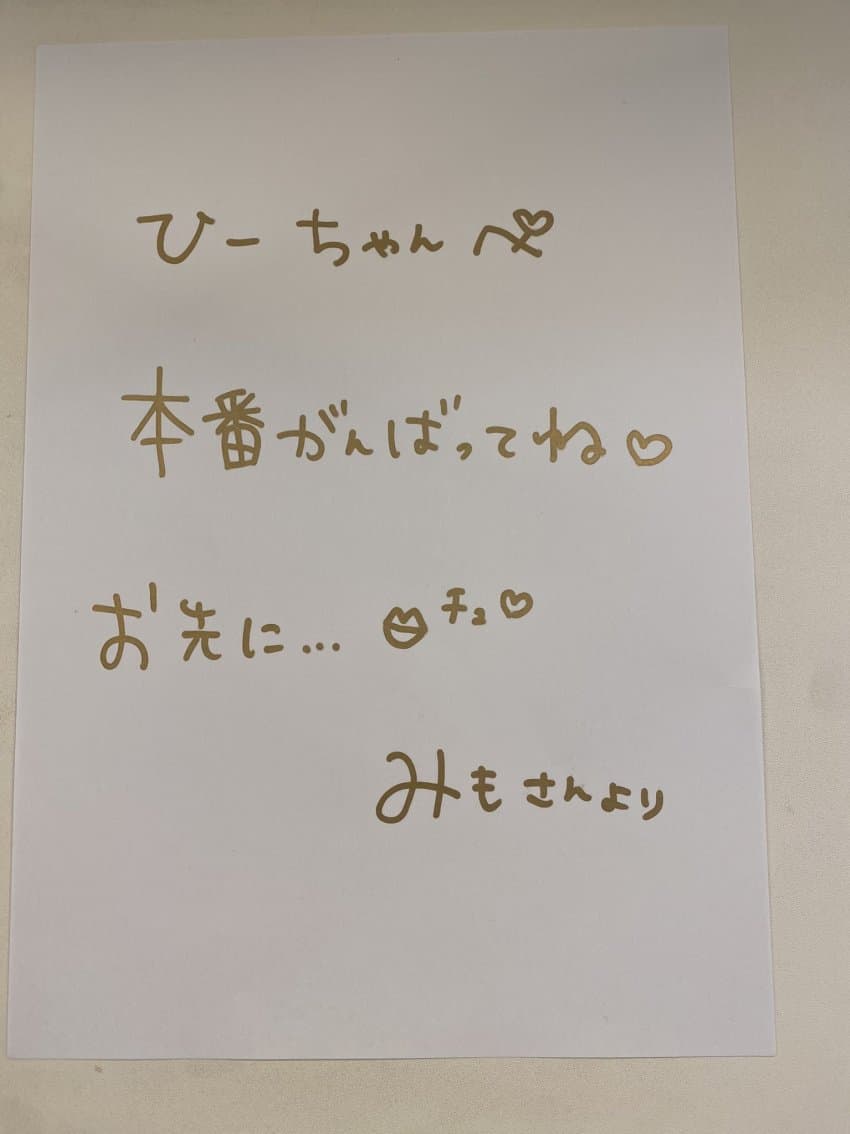 ひーちゃんへ♡
本番がんばってね♡
お先に… チュ♡
みもさんより